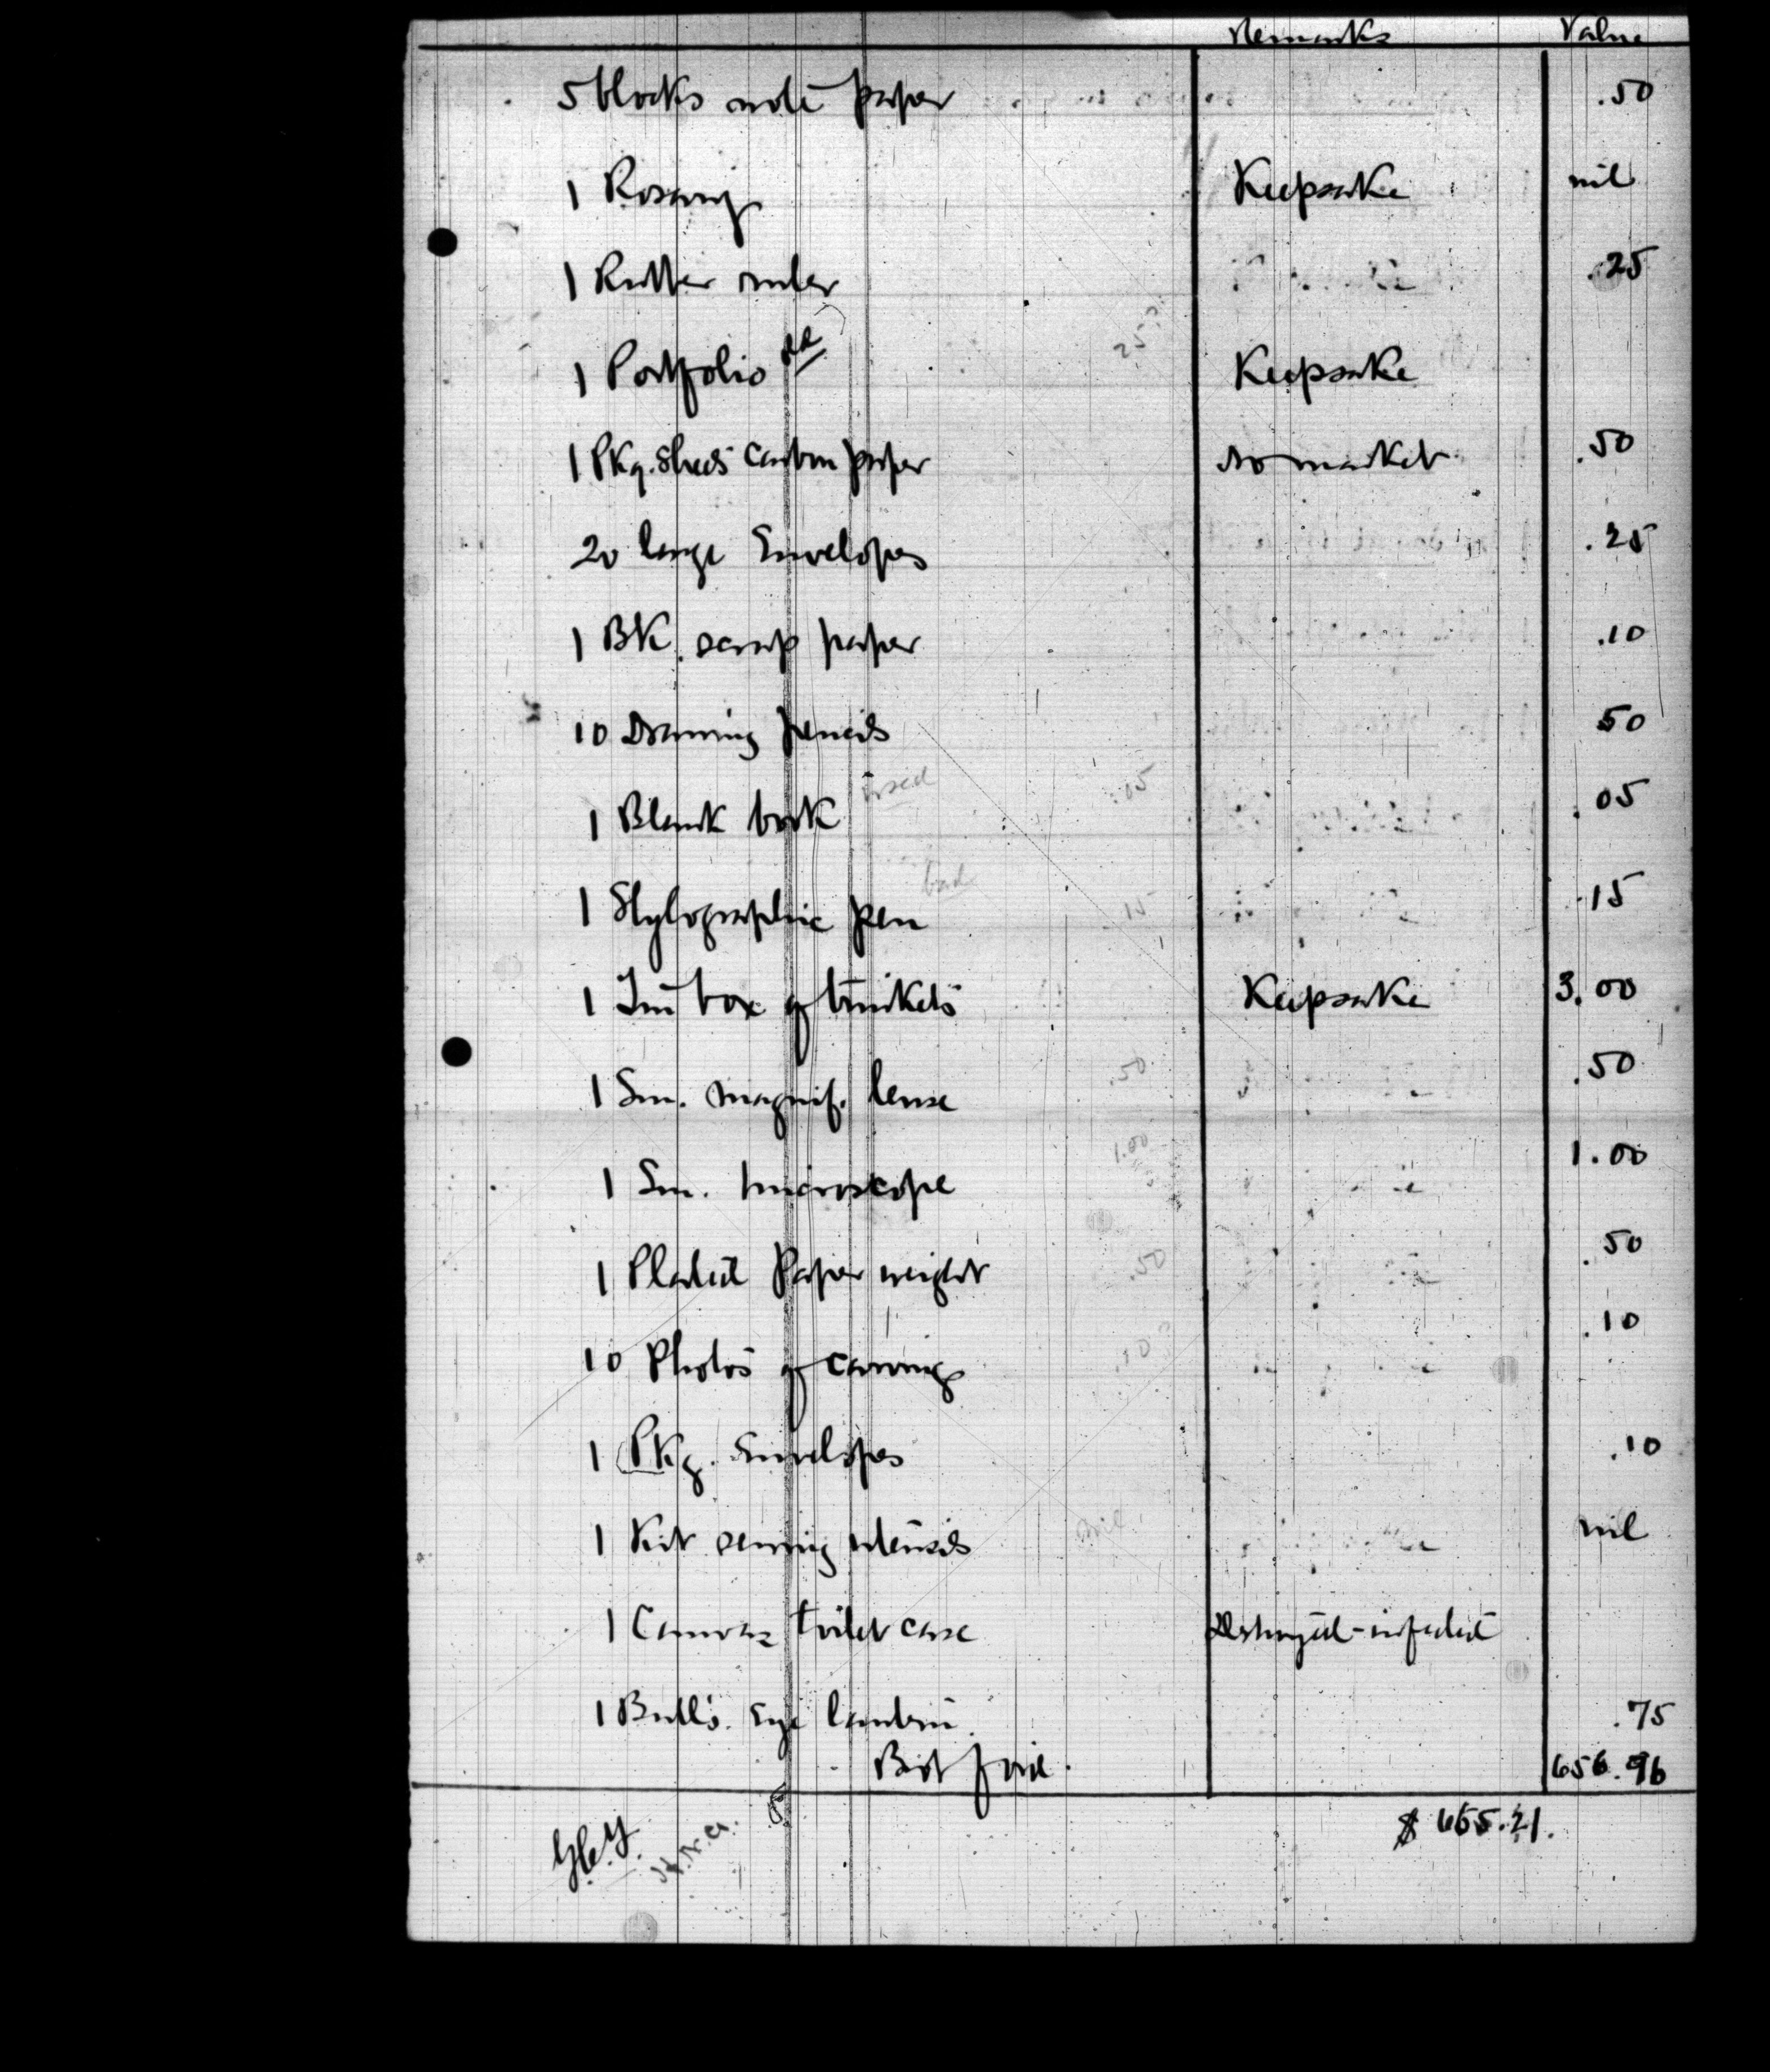 Remarks Value
5 blocks note paper .50
1 Rosary Keepsake nil
1 Rubber ruler .25
1 Portfolio Keepsake
1 Pkg. sheets carbon paper no market .50
20 large Envelopes .25
1 BK. scrap paper .10
10 Drawing pencils 50
1 Blank book used .05 .05
1 Stylographic pen bad 15 .15
1 Tin box of trinkets Keepsake 3.00
1 Sm. magnif. lense .50 .50
1 Sm. microscope 1.00 1.00
1 Plated Paper weight .50 .50
10 Photos of carvings .10 .10
1 PKg. Envelopes .10
1 Kit sewing utensils nil nil
1 Canvas toilet case Destroyed - infected
1 Bull's Eye lantern .75
Bot ford. 656.96
$ 665.21.